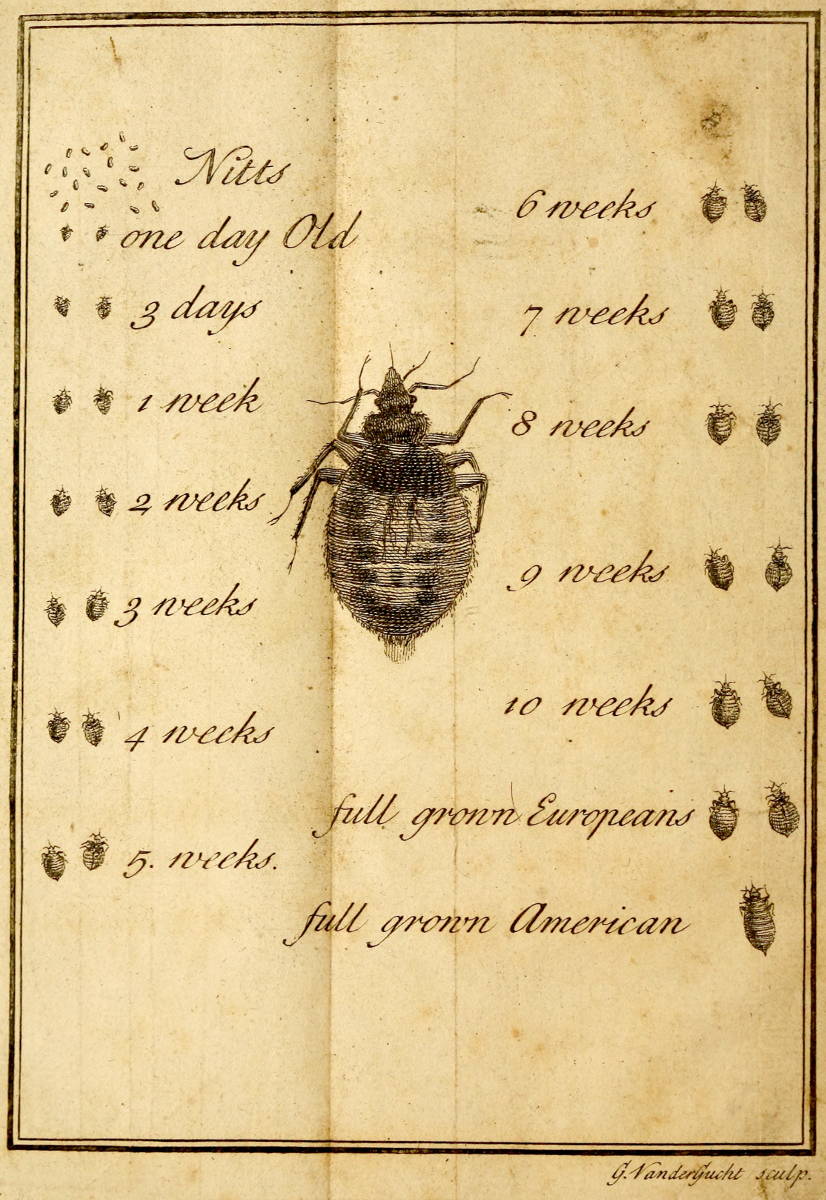 Nitts
one day Old
3 days
1 week
2 weeks
3 weeks
4 weeks
5. weeks.
6 weeks
7 weeks
8 weeks
9 weeks
10 weeks
full grown Europeans
full grown American
G. VanderGucht sculp.